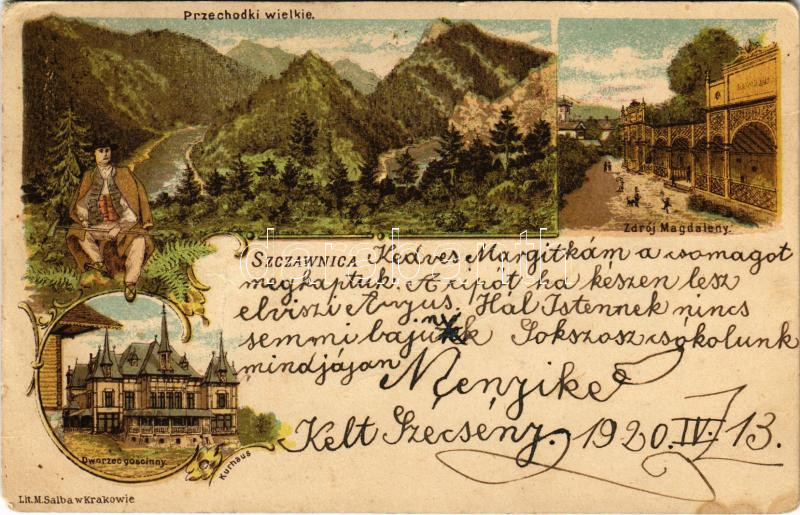 Przechodki wielkie.
Zdrój Magdaleny.
SZCZAWNICA Kedves Margitkám a csomagot
megkaptuk. A cipőt ha készen lesz
elviszi Anyus. Hál Istennek nincs
semmi bajunk Sokszosz csókolunk
mindjájan
Menyike
Kelt Szécsény. 1920. IV. 13.
Dworzec gościnny.
Kurhaus
Lit. M. Salba w Krakowie